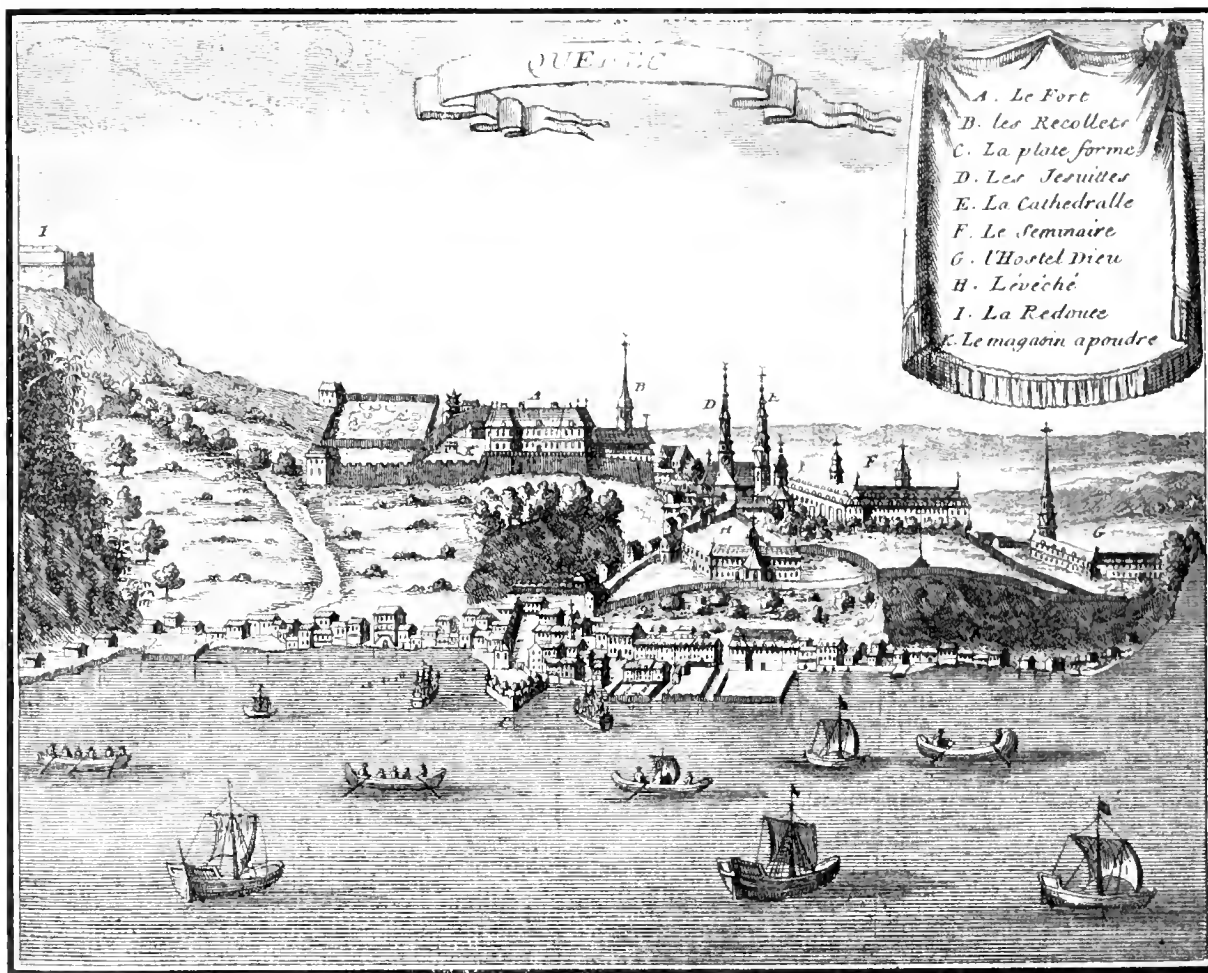 QUEBEC
A. Le Fort
B. les Recollets
C. La plate forme
D. Les Jesuittes
E. La Cathedralle
F. Le Seminaire
G. l'Hostel Dieu
H. Lévéché
I. La Redoute
K. Le magasin a poudre
I
A
B
D
E
F
G